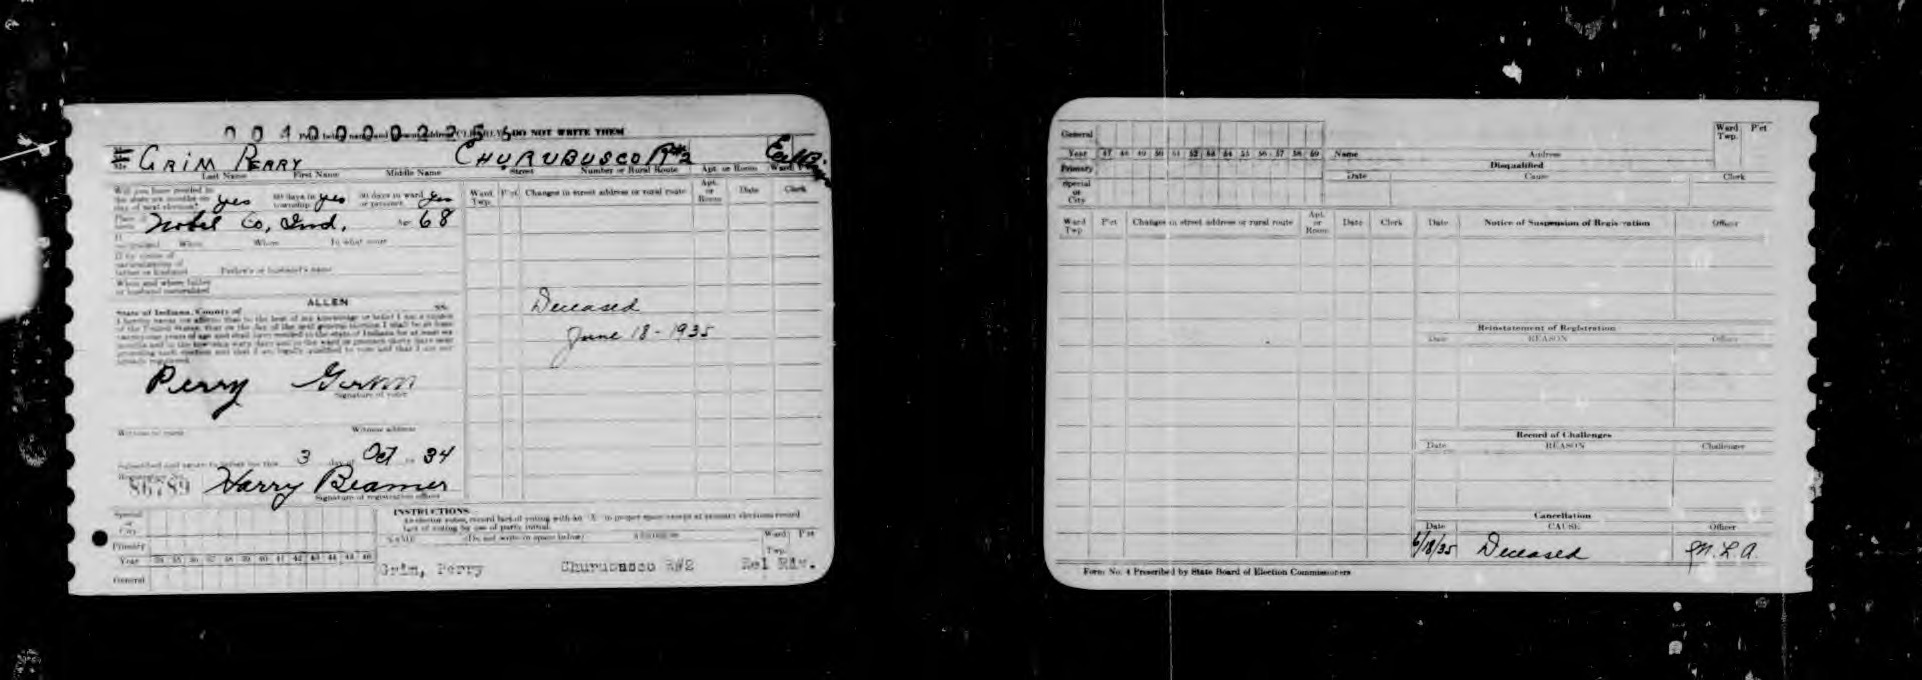 DO NOT WRITE THEM
GRIM PERRY CHURUBUSCO R#2 Eel R.
Last Name First Name Middle Name Street Number or Rural Route Apt. or Room Ward
Will you have resided in the state six months on day of next election? yes 60 days in township yes 30 days in ward or precinct yes
Place of birth Nobel Co, Ind. Age 68
If naturalized When Where In what court
If by virtue of naturalization of father or husband Father's or husband's name
When and where father or husband naturalized
ALLEN
State of Indiana, County of SS:
Perry Grim
Signature of voter
Witness to mark Witness address
Subscribed and sworn to before me this 3 day of Oct 34
Registration No.
86789 Harry Beamer
Signature of registration officer
Ward Twp. P'ct Changes in street address or rural route Apt. or Room Date Clerk
Deceased
June 18-1935
INSTRUCTIONS
NAME (Do not write in space below) ADDRESS Ward Twp. P'ct
Grim, Perry Churubusco R#2 Eel Riv.
Special or City
Primary
Year 34 35 36 37 38 39 40 41 42 43 44 45 46
General
General
Year 47 48 49 50 51 52 53 54 55 56 57 58 59 Name Address Ward Twp. P'ct
Primary Disqualified
Special or City Date Cause Clerk
Ward Twp P'ct Changes in street address or rural route Apt. or Room Date Clerk Date Notice of Suspension of Registration Officer
Reinstatement of Registration
Date REASON Officer
Record of Challenges
Date REASON Challenger
Cancellation
Date CAUSE Officer
6/18/35 Deceased M. L. A.
Form No. 4 Prescribed by State Board of Election Commissioners